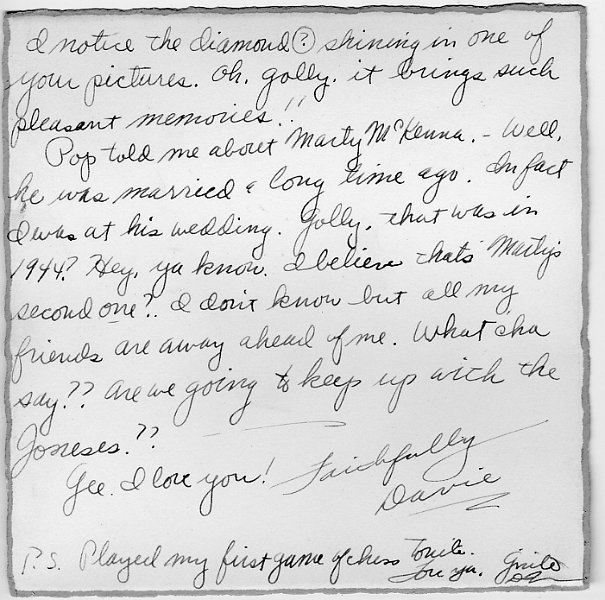 I notice the diamond (?) shining in one of
your pictures. Oh, golly. it brings such
pleasant memories.!!
Pop told me about Marty McKenna. - Well,
he was married a long time ago. In fact
I was at his wedding. Golly, that was in
1944? Hey, ya know. I believe that's Marty's
second one?. I don't know but all my
friends are away ahead of me. What cha
say?? Are we going to keep up with the
Joneses.??
Gee. I love you! Faithfully
Davie
P.S. Played my first game of chess tonite.
Love ya.